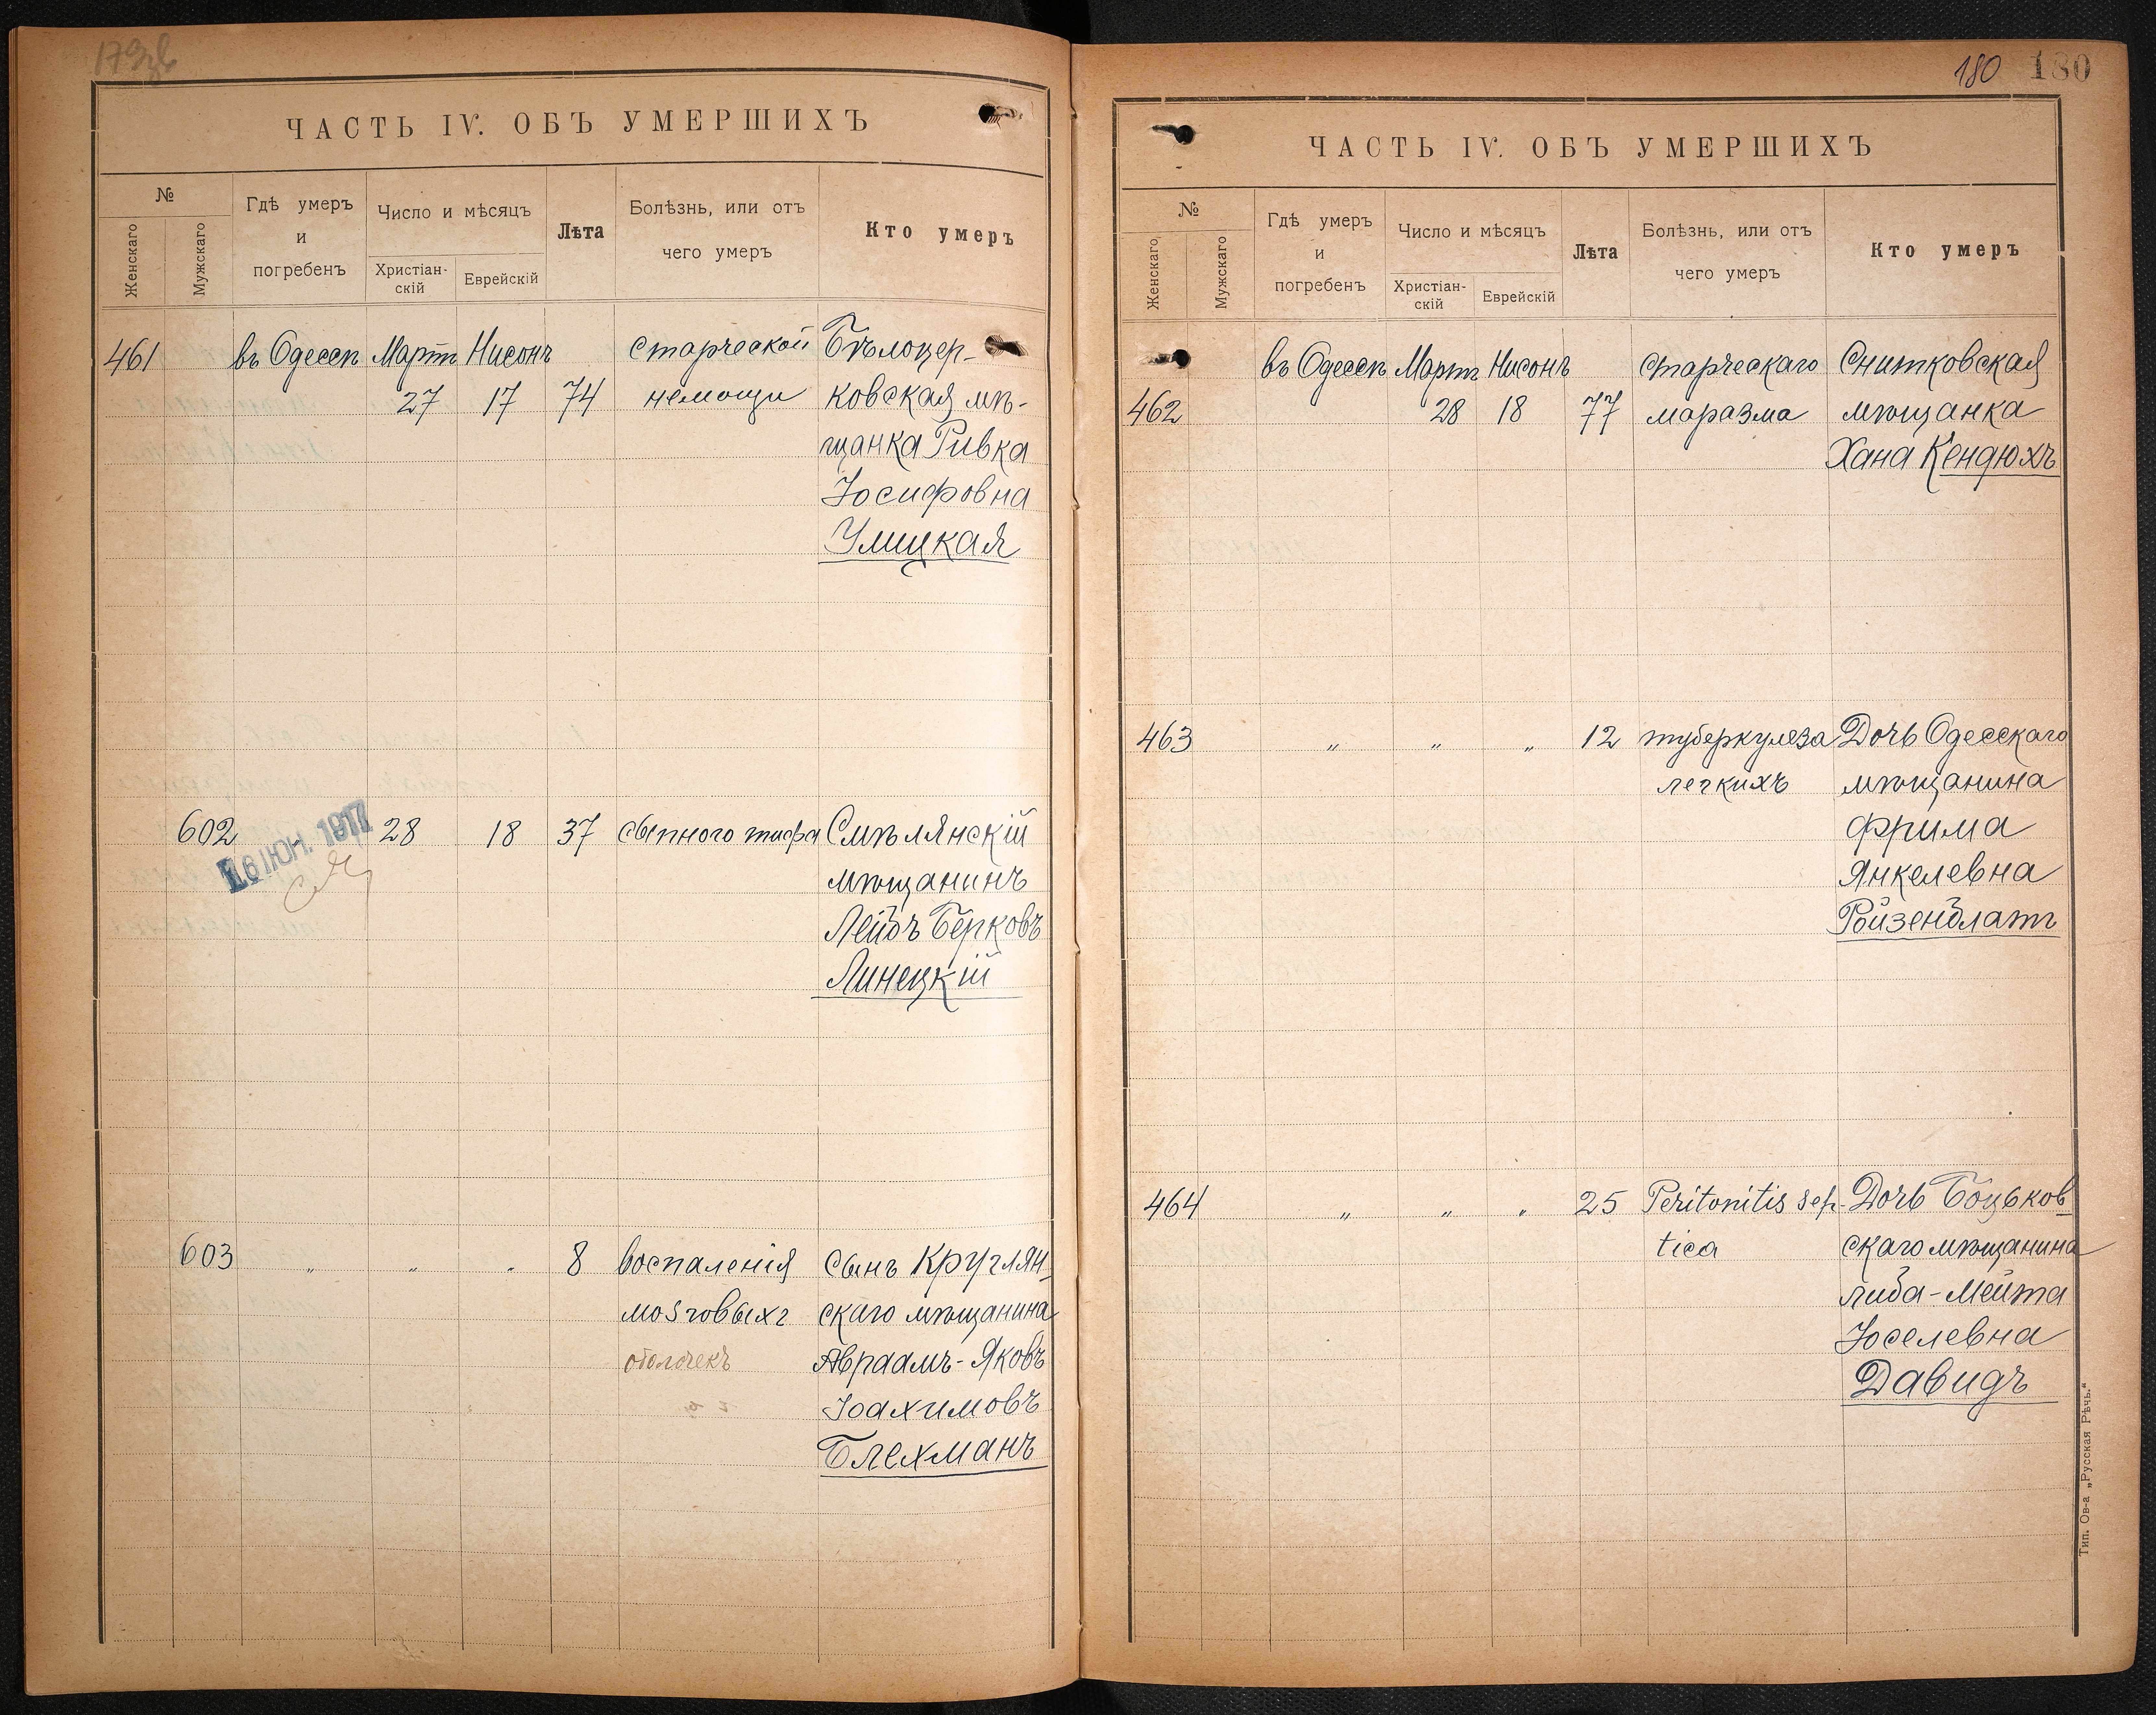 179об
ЧАСТЬ IV. ОБЪ УМЕРШИХЪ
№
Женскаго
Мужскаго
Гдѣ умеръ
и
погребенъ
Число и мѣсяцъ
Христіан-
скій
Еврейскій
Лѣта
Болѣзнь, или отъ
чего умеръ
Кто умеръ
461 въ Одессѣ Мартъ Нисонъ старческой Бѣлоцер-
27 17 74 немощи ковская мѣ-
щанка Ривка
Іосифовна
Улицкая
602 16 ІЮН. 1917 28 18 37 сыпного тифа Смѣлянскій
мѣщанинъ
Лейбъ Берковъ
Линецкій
603 „ „ „ 8 воспаленія Сынъ Круглян-
мозговыхъ скаго мѣщанина
оболочекъ Авраамъ-Яковъ
Іоахимовъ
Блехманъ
180 180
ЧАСТЬ IV. ОБЪ УМЕРШИХЪ
№
Женскаго
Мужскаго
Гдѣ умеръ
и
погребенъ
Число и мѣсяцъ
Христіан-
скій
Еврейскій
Лѣта
Болѣзнь, или отъ
чего умеръ
Кто умеръ
въ Одессѣ Мартъ Нисонъ старческаго Снитковская
462 28 18 77 маразма мѣщанка
Хана Кендюхъ
463 „ „ „ 12 туберкулеза Дочь Одесскаго
легкихъ мѣщанина
Фрима
Янкелевна
Ройзенблатъ
464 „ „ „ 25 Peritonitis sep- Дочь Боцьков-
tica скаго мѣщанина
Либа-Мейта
Іоселевна
Давидъ
Тип. Ов-а „Русская Рѣчь.“